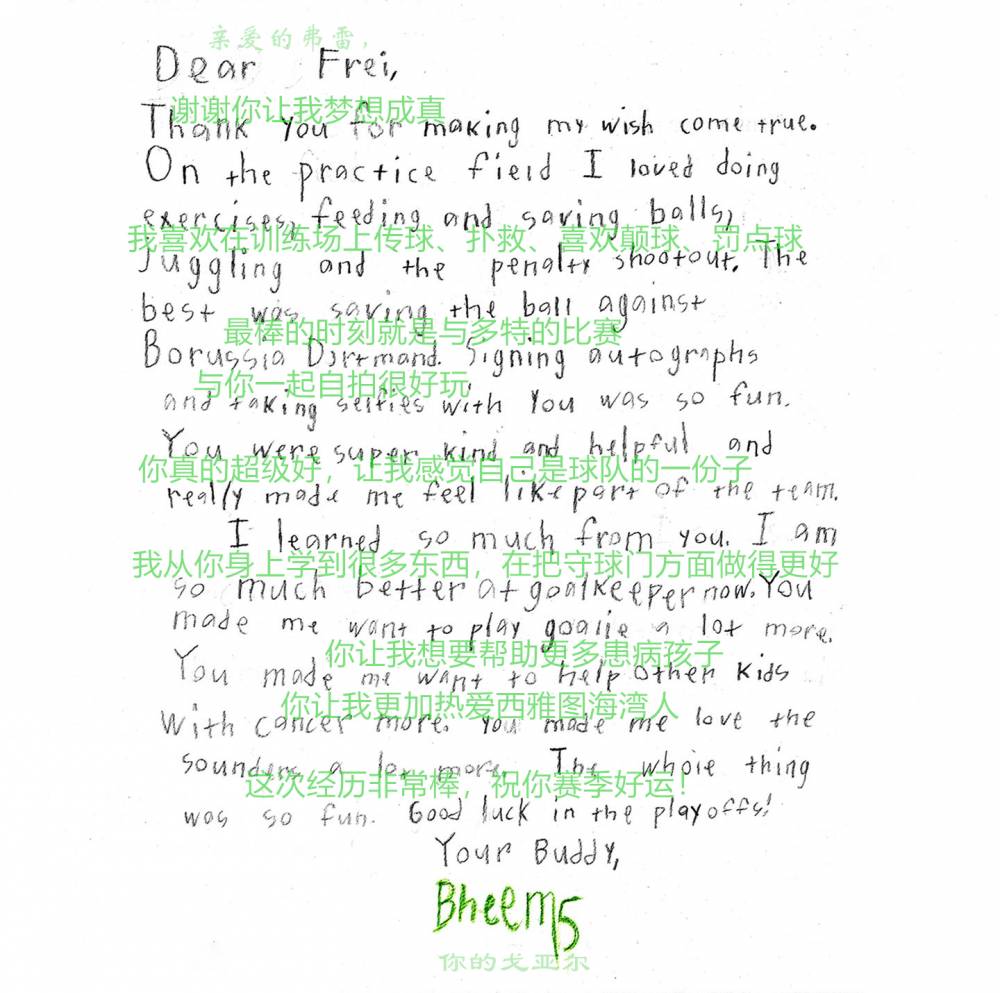 亲爱的弗雷，
Dear Frei,
谢谢你让我梦想成真
Thank you for making my wish come true.
On the practice field I loved doing
exercises, feeding and saving balls,
我喜欢在训练场上传球、扑救、喜欢颠球、罚点球
Juggling and the penalty shootout. The
best was saving the ball against
最棒的时刻就是与多特的比赛
Borussia Dortmand. Signing autographs
与你一起自拍很好玩
and taking selfies with You was so fun.
You were super kind and helpful and
你真的超级好，让我感觉自己是球队的一份子
really made me feel like part of the team.
I learned so much from you. I am
我从你身上学到很多东西，在把守球门方面做得更好
so much better at goalkeeper now. You
made me want to play goalie a lot more.
你让我想要帮助更多患病孩子
You made me want to help other kids
你让我更加热爱西雅图海湾人
With cancer more. You made me love the
sounders a lot more. The whole thing
这次经历非常棒，祝你赛季好运！
was so fun. Good luck in the playoffs!
Your Buddy,
Bheem5
你的戈亚尔